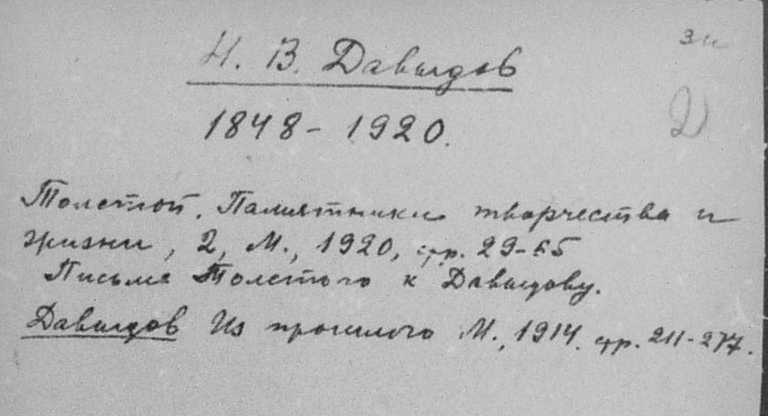 Н. В. Давыдов
1848 - 1920.
Толстой. Памятники творчества и
жизни, 2, М., 1920, стр. 29-
Письма Толстого к Давыдову.
Давыдов Из прошлого М., 1914. стр. 211-277.